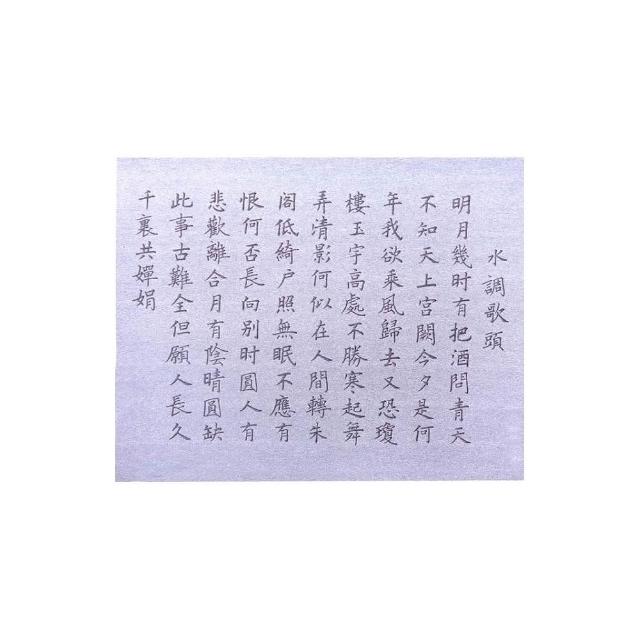 水調歌頭
明月幾时有把酒問青天
不知天上宮闕今夕是何
年我欲乘風歸去又恐瓊
樓玉宇高處不勝寒起舞
弄清影何似在人間轉朱
阁低綺户照無眠不應有
恨何否長向别时圓人有
悲歡離合月有陰晴圓缺
此事古難全但願人長久
千裏共嬋娟